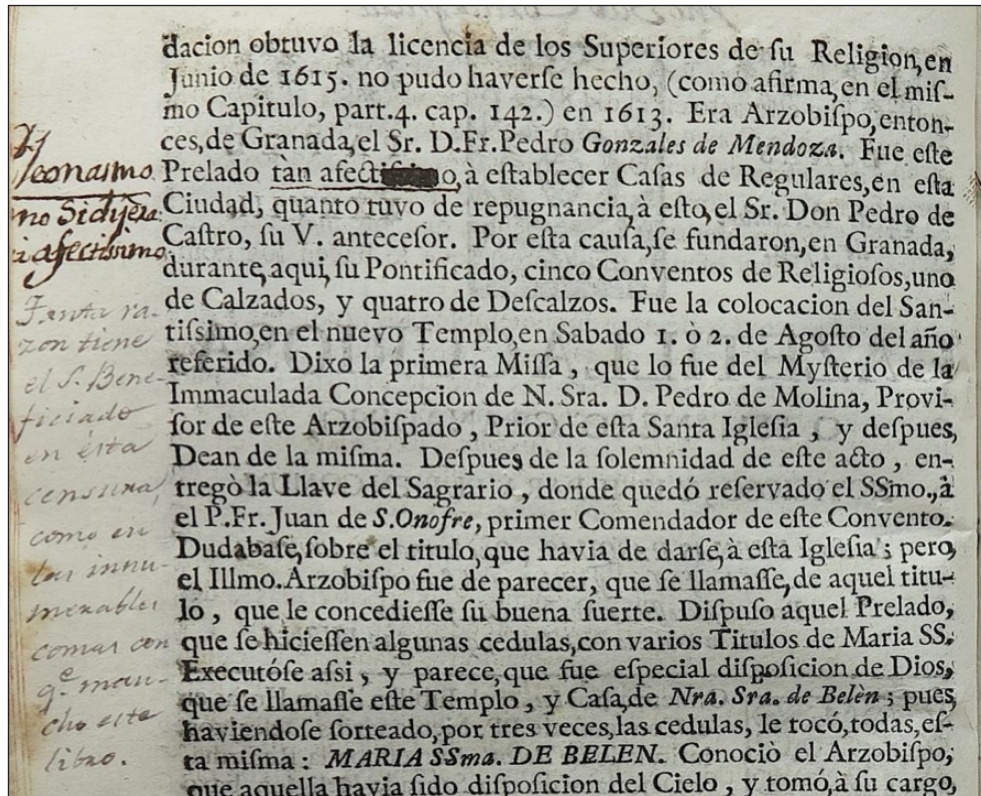 dacion obtuvo la licencia de los Superiores de ſu Religion, en
Junio de 1615. no pudo haverſe hecho, (como afirma, en el miſ-
mo Capitulo, part.4. cap. 142.) en 1613. Era Arzobiſpo, enton-
ces, de Granada, el Sr. D.Fr.Pedro Gonzales de Mendoza. Fue eſte
Prelado tàn afecti o, à eſtablecer Caſas de Regulares, en eſta
Ciudad, quanto tuvo de repugnancia, à eſto, el Sr. Don Pedro de
Caſtro, ſu V. anteceſor. Por eſta cauſa, ſe fundaron, en Granada,
durante, aqui, ſu Pontificado, cinco Conventos de Religioſos, uno
de Calzados, y quatro de Deſcalzos. Fue la colocacion del San-
tiſsimo, en el nuevo Templo, en Sabado 1. ò 2. de Agoſto del año
referido. Dixo la primera Miſſa, que lo fue del Myſterio de la
Immaculada Concepcion de N. Sra. D. Pedro de Molina, Provi-
ſor de eſte Arzobiſpado, Prior de eſta Santa Igleſia, y deſpues,
Dean de la miſma. Deſpues de la ſolemnidad de eſte acto, en-
tregò la Llave del Sagrario, donde quedó reſervado el SSmo., à
el P.Fr. Juan de S.Onofre, primer Comendador de eſte Convento.
Dudabaſe, ſobre el titulo, que havia de darſe, à eſta Igleſia; pero,
el Illmo. Arzobiſpo fue de parecer, que ſe llamaſſe, de aquel titu-
lo, que le concedieſſe ſu buena ſuerte. Diſpuſo aquel Prelado,
que ſe hicieſſen algunas cedulas, con varios Titulos de Maria SS.
Executóſe aſsi, y parece, que fue eſpecial diſpoſicion de Dios,
que ſe llamaſſe eſte Templo, y Caſa, de Nra. Sra. de Belèn; pues,
haviendoſe ſorteado, por tres veces, las cedulas, le tocó, todas, eſ-
ta miſma: MARIA SSma. DE BELEN. Conociò el Arzobiſpo,
que aquella havia ſido diſpoſicion del Cielo, y tomó, à ſu cargo,
leonasmo
no Sidijera
afectissimo
Tanta ra-
zon tiene
el S. Bene-
ficiado
en esta
censura,
como en
las innu-
merables
comas con
q.e man-
cho este
libro.